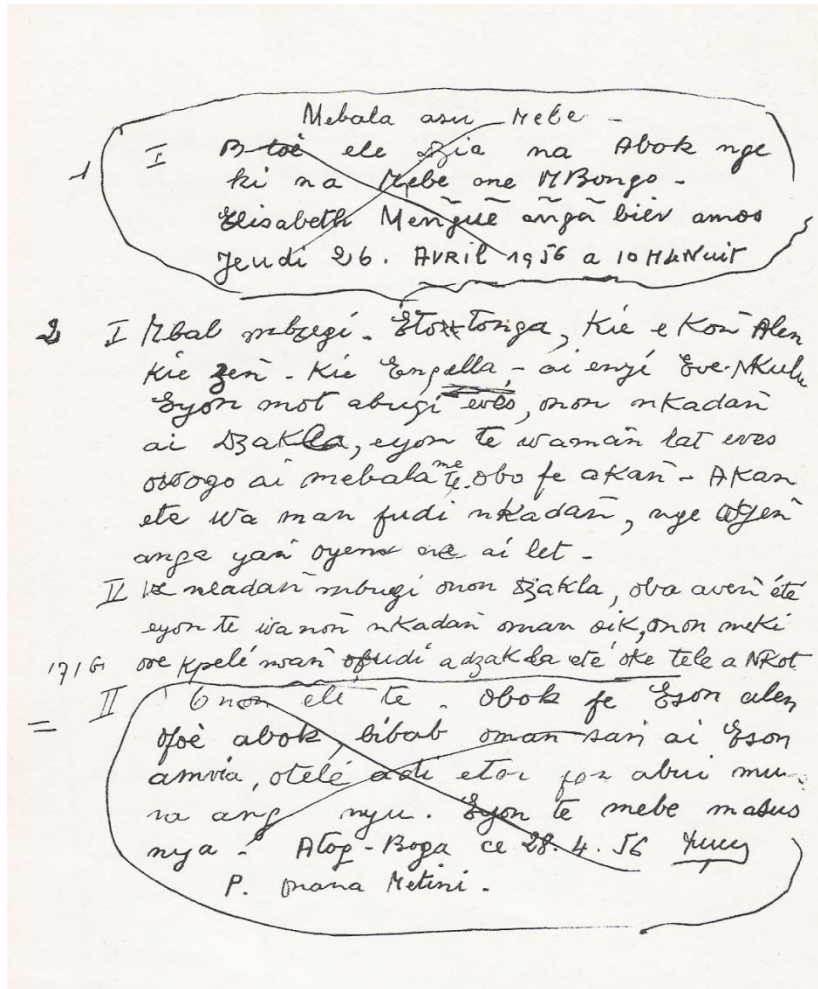 Mebala asu Mebe -
1 I B toè ele Dzia na Abok nge
ki na Mebe one MBongo -
Elisabeth Menguẽ ãngã biev amos
Jeudi 26. AVRil 1956 a 10 H de Nuit
2 I Mbal mbzegi - Etontonga, Kie e Koñ Alen
Kie zeñ - Kie Engella - ai enyí Eve-Nkulu
Eyon mot abugi evès, onon nkadañ
ai Dzakla, eyon te waman lat eves
osogo ai mebala me te. obo fe akañ - Akan
ete wa man fudi nkadañ, nge
anga yañ oyem ne ai let -
II nkadañ mbugi onon dzakla, oba aveñ été
eyon te wa noñ nkadañ oman sik, onon meki
171G ove kpelé nnañ ofudi a dzakla eté oke tele a NKot
= II Onon elé te - Obok fe Eson alen
ofoè abok, bibab oman sañ ai Eson
amvia, otelé adi etoi fon abui mu
na ang nyu. Eyon te mebe masus
nya - Atog-Boga ce 28.4.56
P. Onana Metini -